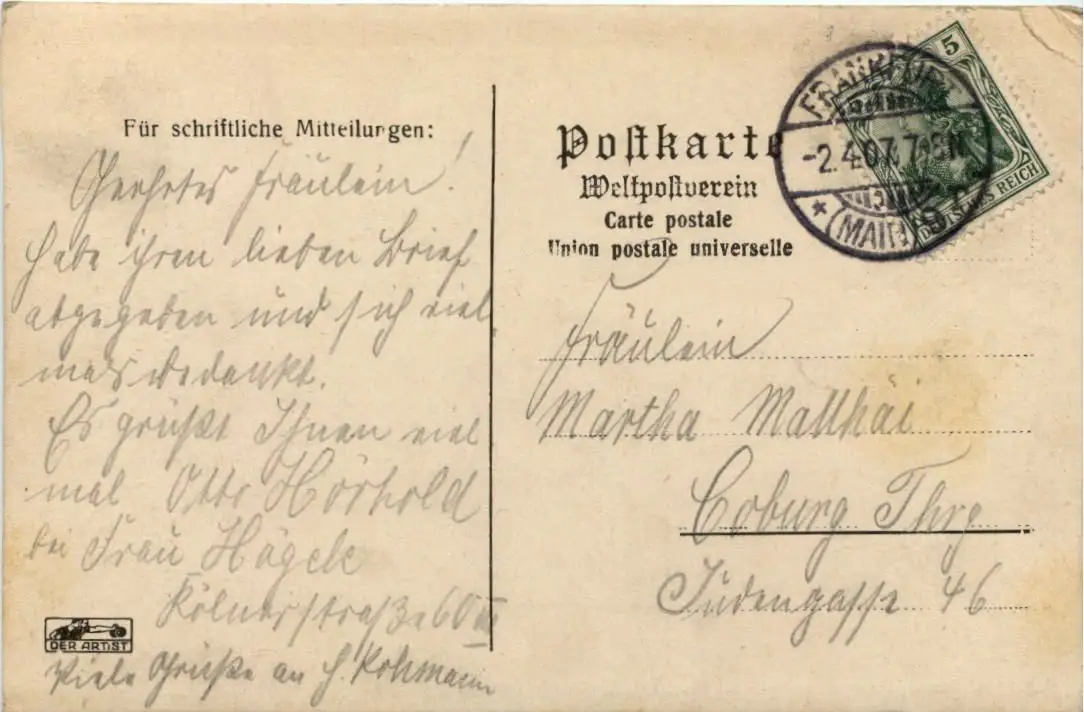 Für schriftliche Mitteilungen:
Geehrtes Fräulein!
Habe ihren lieben Brief
abgegeben und sich viel
mals bedankt.
Es grüßt Ihnen viel
mal Otto Hörhold
bei Frau Hägele
Kölnerstraße 60 III
Viele Grüße an H.
DER ARTIST
Postkarte
Weltpostverein
Carte postale
Union postale universelle
FRANKFURT
-2.4.07. 7-8 N
* (MAIN) 9
5
DEUTSCHES REICH
Fräulein
Martha Matthäi
Coburg Thrg
Judengasse 46